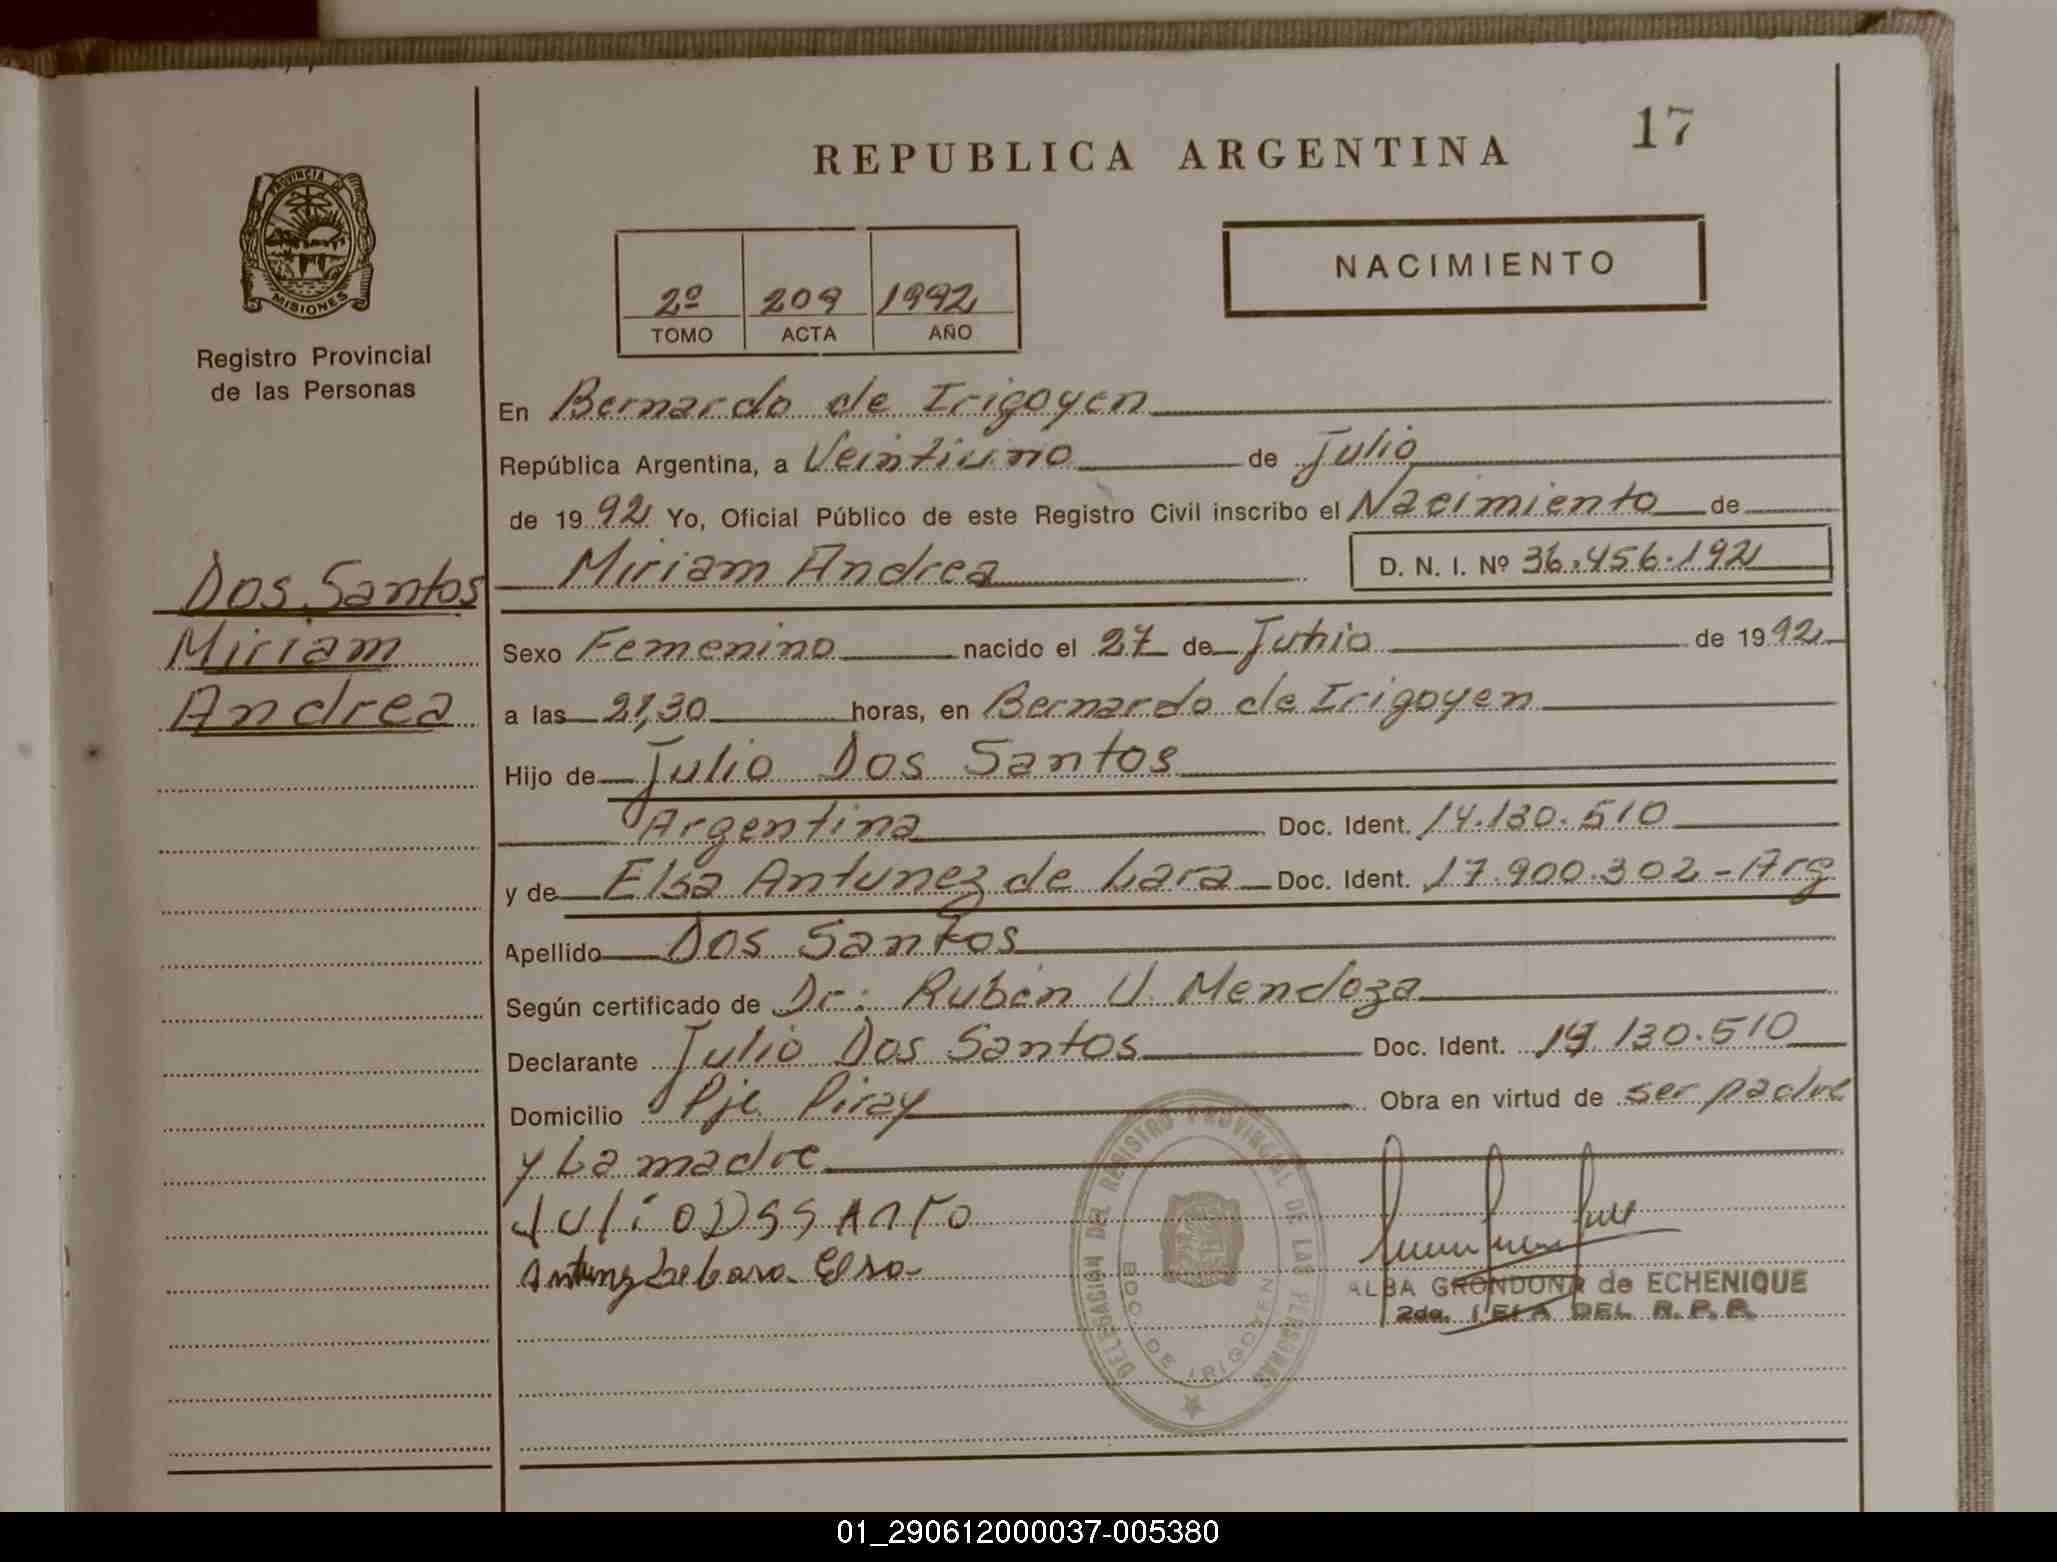 17
REPUBLICA ARGENTINA
PROVINCIA DE
MISIONES
NACIMIENTO
2º 209 1992
TOMO ACTA AÑO
Registro Provincial
de las Personas
En Bernardo de Irigoyen
República Argentina, a Veintiuno de Julio
de 1992 Yo, Oficial Público de este Registro Civil inscribo el Nacimiento de
Miriam Andrea D. N. I. Nº 36.456.192
Dos Santos
Miriam
Andrea
Sexo Femenino nacido el 27 de Junio de 1992
a las 21,30 horas, en Bernardo de Irigoyen
Hijo de Julio Dos Santos
Argentina Doc. Ident. 14.130.510
y de Elsa Antunez de Lara Doc. Ident. 17.900.302 - Arg
Apellido Dos Santos
Según certificado de Dr: Rubén U. Mendoza
Declarante Julio Dos Santos Doc. Ident. 14.130.510
Domicilio Pje Piray Obra en virtud de ser padre
y La madre
JULIODSSANTO
Elsa
DELEGACION DEL REGISTRO PROVINCIAL DE LAS PERSONAS
BDO. DE IRIGOYEN
ALBA GRONDONA de ECHENIQUE
2da. JEFA DEL R. P. P.
01_290612000037-005380